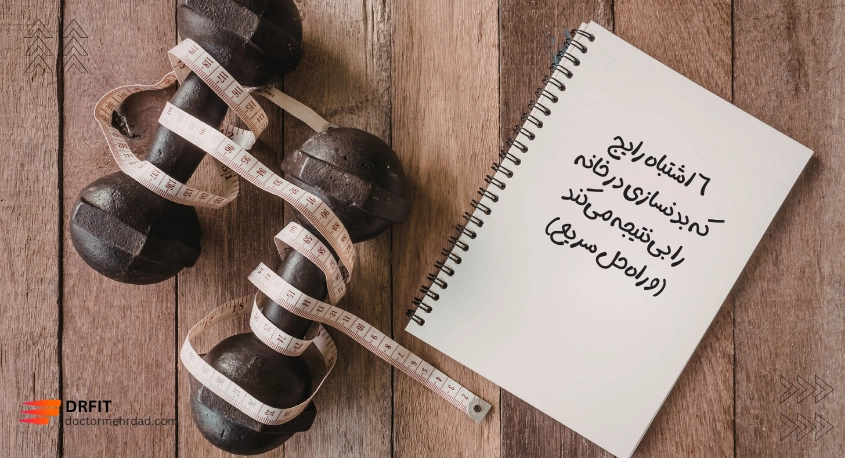 ۶ اشتباه رایج
که بدنسازی در خانه
را بی‌نتیجه می‌کند
(و راه‌حل سریع)
DRFIT
doctormehrdad.com